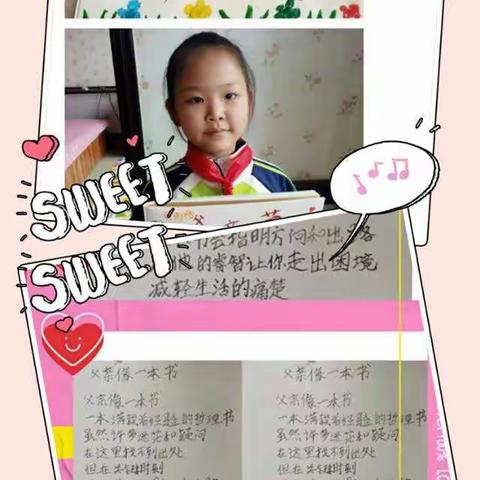 SWEET
SWEET
书会指明方向和出路
的睿智让你走出困境
减轻生活的痛楚
父亲像一本书
父亲像一本书
一本满载着经验的哲理书
虽然许多迷茫和疑问
在这里找不到出处
但在关键时刻
父亲像一本书
父亲像一本书
一本满载着经验的哲理书
虽然许多迷茫和疑问
在这里找不到出处
但在关键时刻